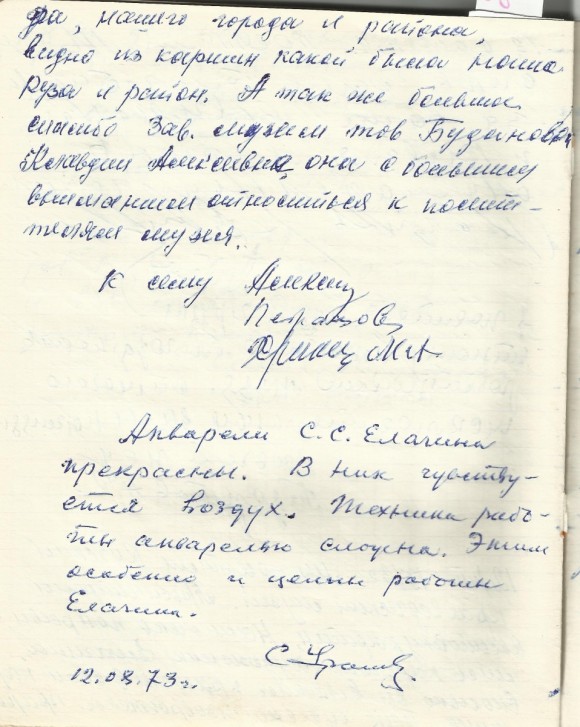 нашего города и района,
видно из картин какой была наша
Руза и район. А так же большое
спасибо Зав. музеем тов Будановой
Клавдии Алексеевне, она с большим
вниманием относиться к посети-
телям музея.
К сему
Акварели С.С. Елагина
прекрасны. В них чувству-
ется воздух. Техника рабо-
ты акварелью сложна. Этим
особенно и ценны работы
Елагина.
12.08.73г.